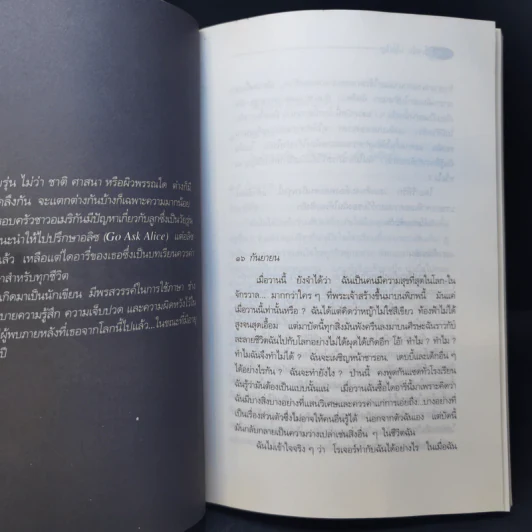 รุ่น ไม่ว่า ชาติ ศาสนา หรือผิวพรรณใด ต่างก็มี
คลึงกัน จะแตกต่างกันบ้างก็เฉพาะความมากน้อย
อบครัวชาวอเมริกันมีปัญหาเกี่ยวกับลูกซึ่งเป็นวัยรุ่น
นะนำให้ไปปรึกษาอลิซ (Go Ask Alice) แต่อลิซ
แล้ว เหลือแต่ไดอารี่ของเธอซึ่งเป็นบทเรียนควรค่า
าสำหรับทุกชีวิต
กิดมาเป็นนักเขียน มีพรสวรรค์ในการใช้ภาษา ช่าง
บายความรู้สึก ความเจ็บปวด และความผิดหวังไว้ใน
ผู้พบภายหลังที่เธอจากโลกนี้ไปแล้ว...ในขณะที่มีอายุ
ปี
๑๖ กันยายน
เมื่อวานนี้ ยังจำได้ว่า ฉันเป็นคนมีความสุขที่สุดในโลก-ใน
จักรวาล... มากกว่าใครๆ ที่พระเจ้าสร้างขึ้นมาบนพิภพนี้ มันแค่
เมื่อวานนี้เท่านั้นหรือ ? ฉันได้แต่คิดว่าหญ้าไม่ใช่สีเขียว ท้องฟ้าไม่ได้
สูงจนสุดเอื้อม แต่มาบัดนี้ทุกสิ่งมันพังครืนลงมาบนศีรษะฉันราวกับ
ละลายชีวิตฉันไปกับโลกอย่างไม่ได้ผุดได้เกิดอีก โอ้! ทำไม ? ทำไม ?
ทำไมฉันจึงทำไม่ได้ ? ฉันจะเผชิญหน้าชารอน, เดบบี้และเด็กอื่น ๆ
ได้อย่างไรกัน ? ฉันจะทำยังไง ? ป่านนี้ คงพูดกันแซดทั่วโรงเรียน
ฉันรู้ว่ามันต้องเป็นแบบนั้นแน่ เมื่อวานฉันซื้อไดอารี่นี้มาเพราะคิดว่า
ฉันมีบางสิ่งบางอย่างที่แสนวิเศษและควรค่าแก่การเอ่ยถึง...บางอย่างที่
เป็นเรื่องส่วนตัวซึ่งไม่อาจให้คนอื่นรู้ได้ นอกจากตัวฉันเอง แต่บัดนี้
มันกลับกลายเป็นความว่างเปล่าเช่นสิ่งอื่น ๆ ในชีวิตฉัน
ฉันไม่เข้าใจจริง ๆ ว่า โรเจอร์ทำกับฉันได้อย่างไร ในเมื่อฉัน